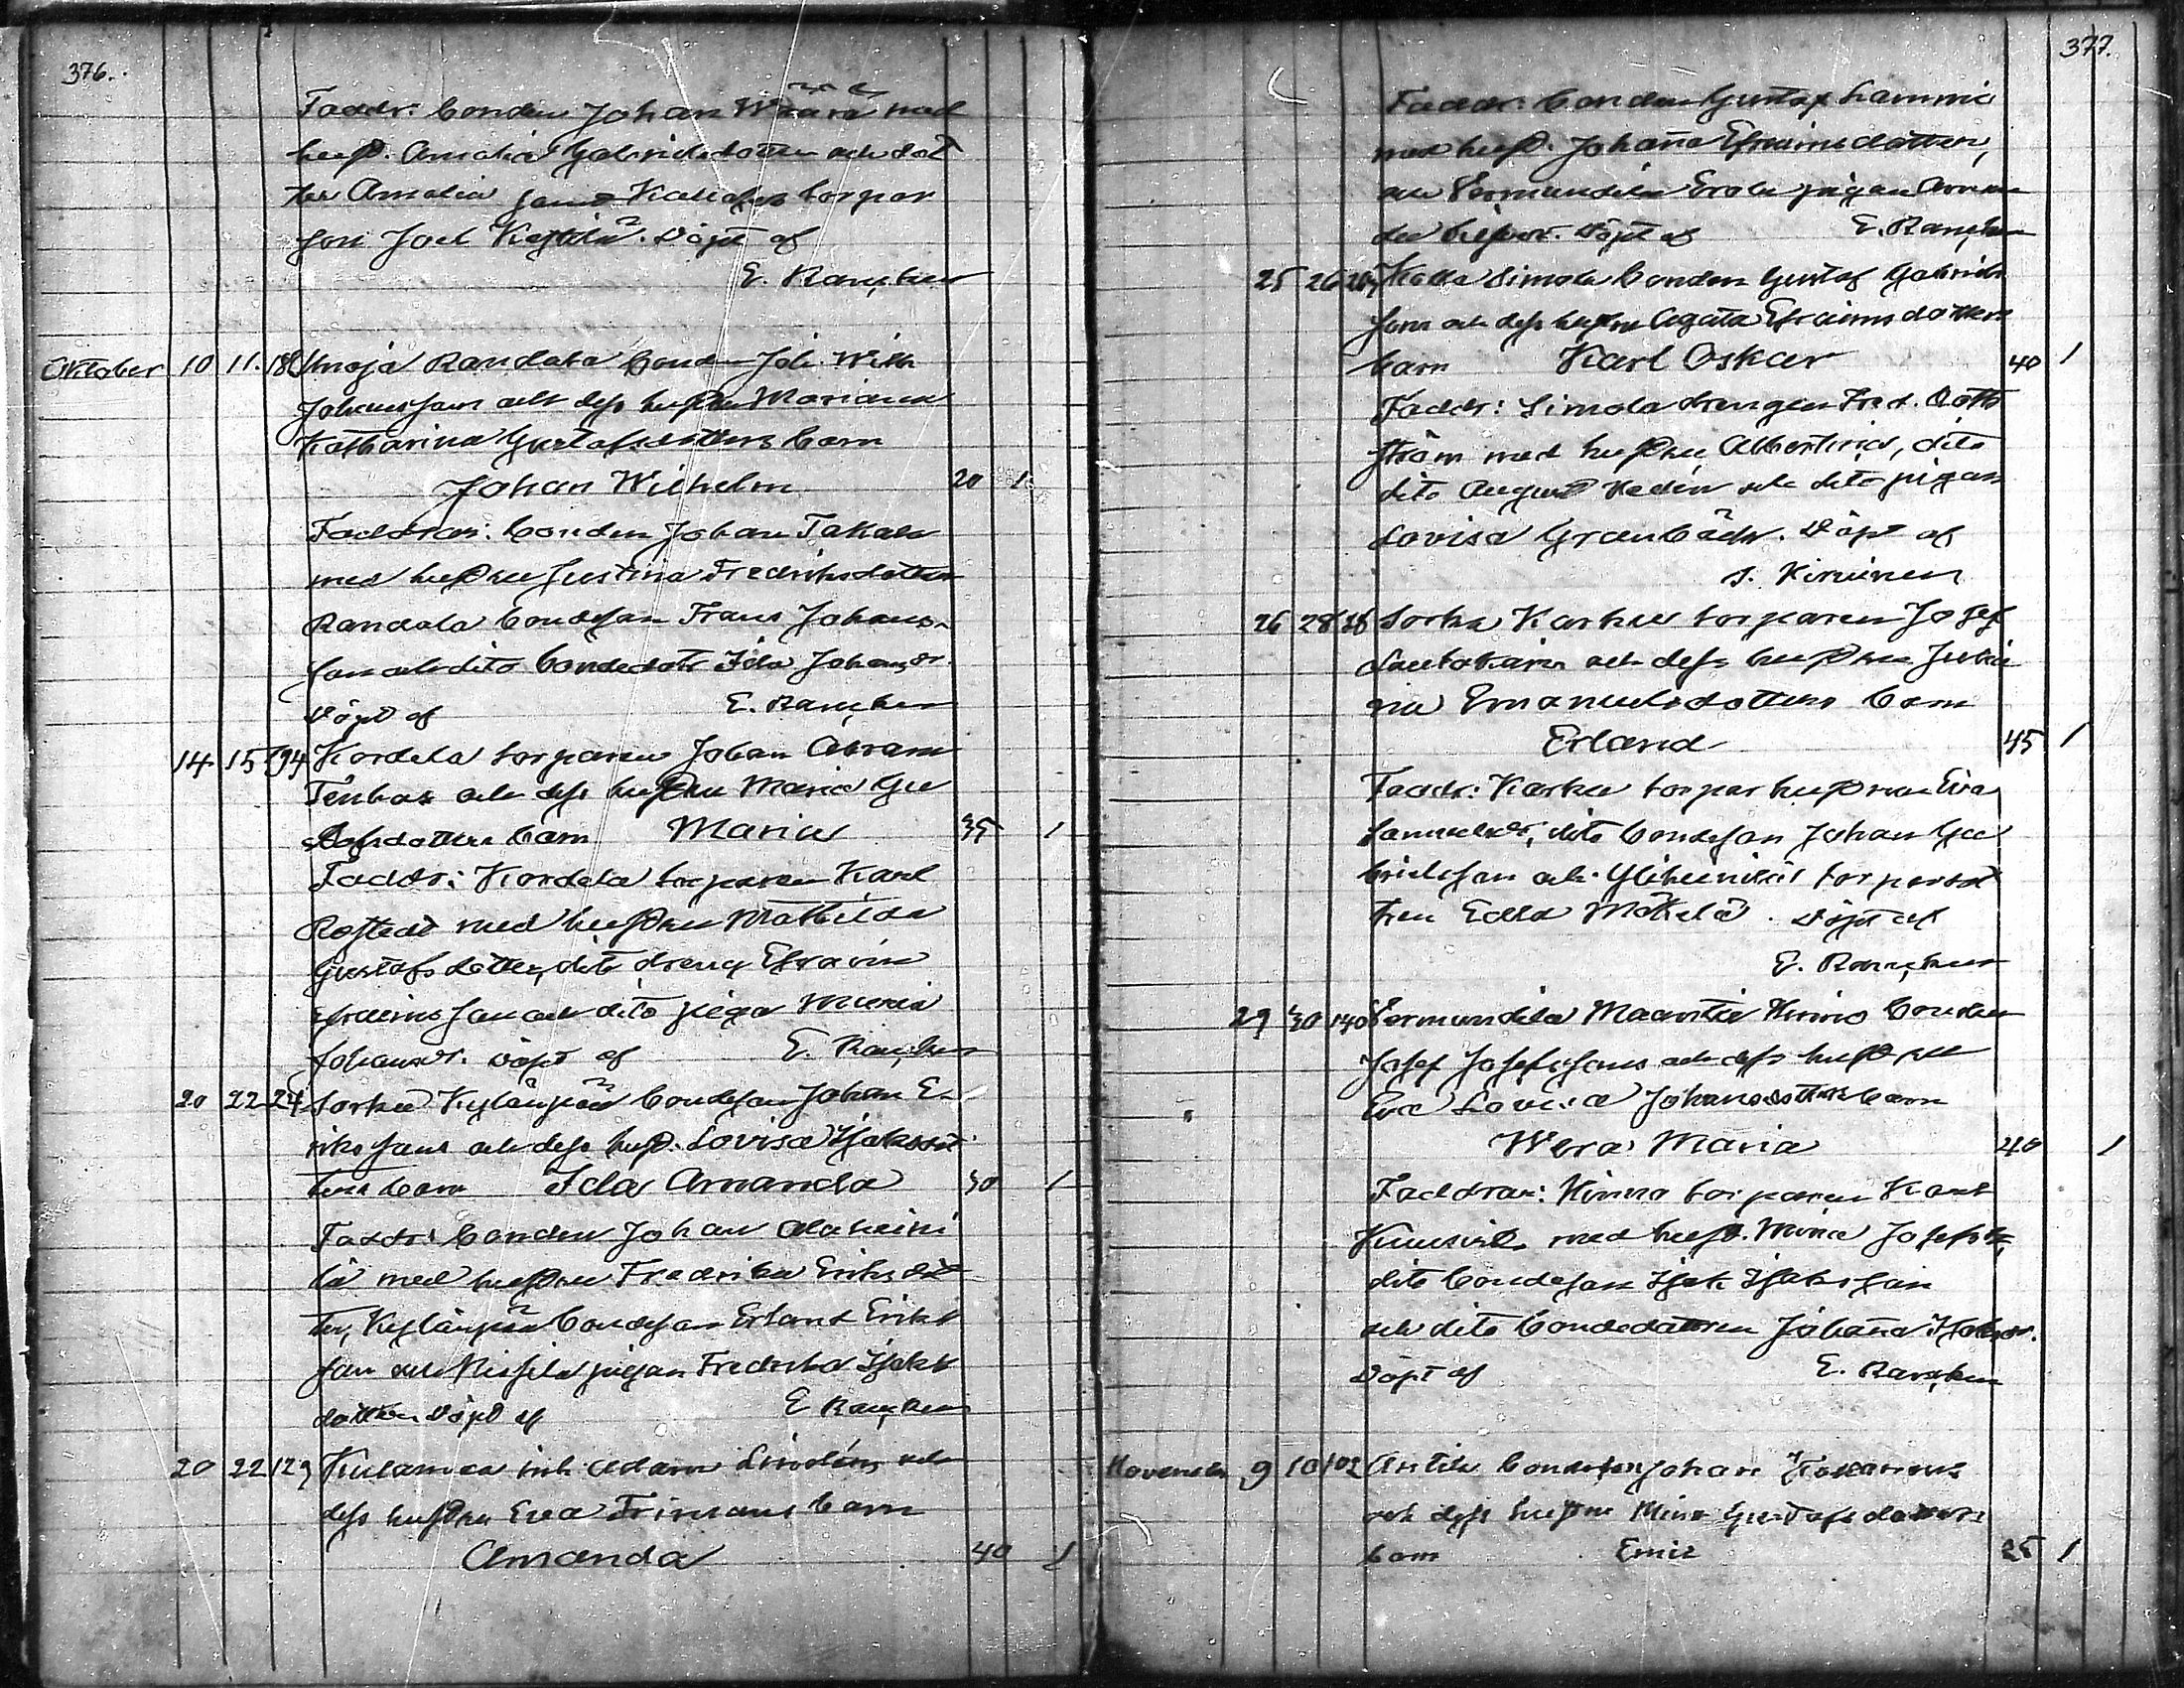 376.
Faddr: bonden Johan Wräärä med
hust. Amalia Gabrielsdotter och dot
ter Amalia samt torpar
son Joel Ketola. Döpt af
E. Rancken
Oktober 10 11. Unoja Randala bonden Joh. Wilh
Johanssons och dess hustru Mariana
Katharina Gustafsdotters barn
Johan Wilhelm 20 1
Faddrar: bonden Johan Takala
med hustru Justina Fredriksdotter
Randala bondeson Frans Johans-
son och dito bondedotr Ida Johansdr.
Döpt af E. Rancken
14 15 194 Kordela torparen Johan Abram
och dess hustru Maria Gu
stafsdotters barn Maria 35 1
Faddr: Kordela torparen Karl
Rostedt med hustru Mathilda
Gustafsdotter, dito dreng Efraim
Efraimsson och dito piga Maria
Johansdr. Döpt af E. Rancken
20 22 24 Sorku Kylänpää bondeson Johan E-
riks sons och dess hust. Lovisa Isaksdot
ters barn Ida Amanda 30 1
Faddr: bonden Johan Alaheini
lä med hustru Fredrika Eriksdot
ter, Kylänpää bondeson Erland Eriks
son och pigan Fredrika Isaks
dotter Döpt af E Rancken
20 22 129 inh Adam Lindéns och
dess hustru Eva Frimans barn
Amanda 40 1
377.
Faddr: bonden Gustaf Lammi
med hust. Johaña Efraimsdotter,
och Vermundila Erola pigan Aman
da. Döpt af E. Rancken
25 26 Simola bonden Gustaf Gabriels
sons och dess hustru Agata Efraimsdotters
barn Karl Oskar 40 1
Faddr: Simola drengen Fred. Roth
ström med hustru Albertina, dito
dito August Hedin och dito pigan
Lovisa Granbäck. Döpt af
J. Kiruinen
26 28 Sorku Karhu torparen Josef
och dess hustru Julia
na Emanuelsdotters barn
Erland 45 1
Faddr: Karhu torpar hustrun Eva
Samuelsdr, dito bondeson Johan Ga
brielsson och torpardot
tren Edla Mäkelä. Döpt af
E. Rancken
29 30 140 Vermundila Maantie Kinno bonden
Josef Josefssons och dess hustru
Eva Lovisa Johansdotters barn
Wera Maria 40 1
Faddrar: Kinno torparen Karl
med hust. Maria Josefsdr,
dito bondeson Isak Isaksson
och dito bondedottren Johaña Isaksdr.
Döpt af E. Rancken
November 9 10 102 Anttila bondeson Johan
och dess hustru Mina Gustafsdotters
barn Emil 25 1